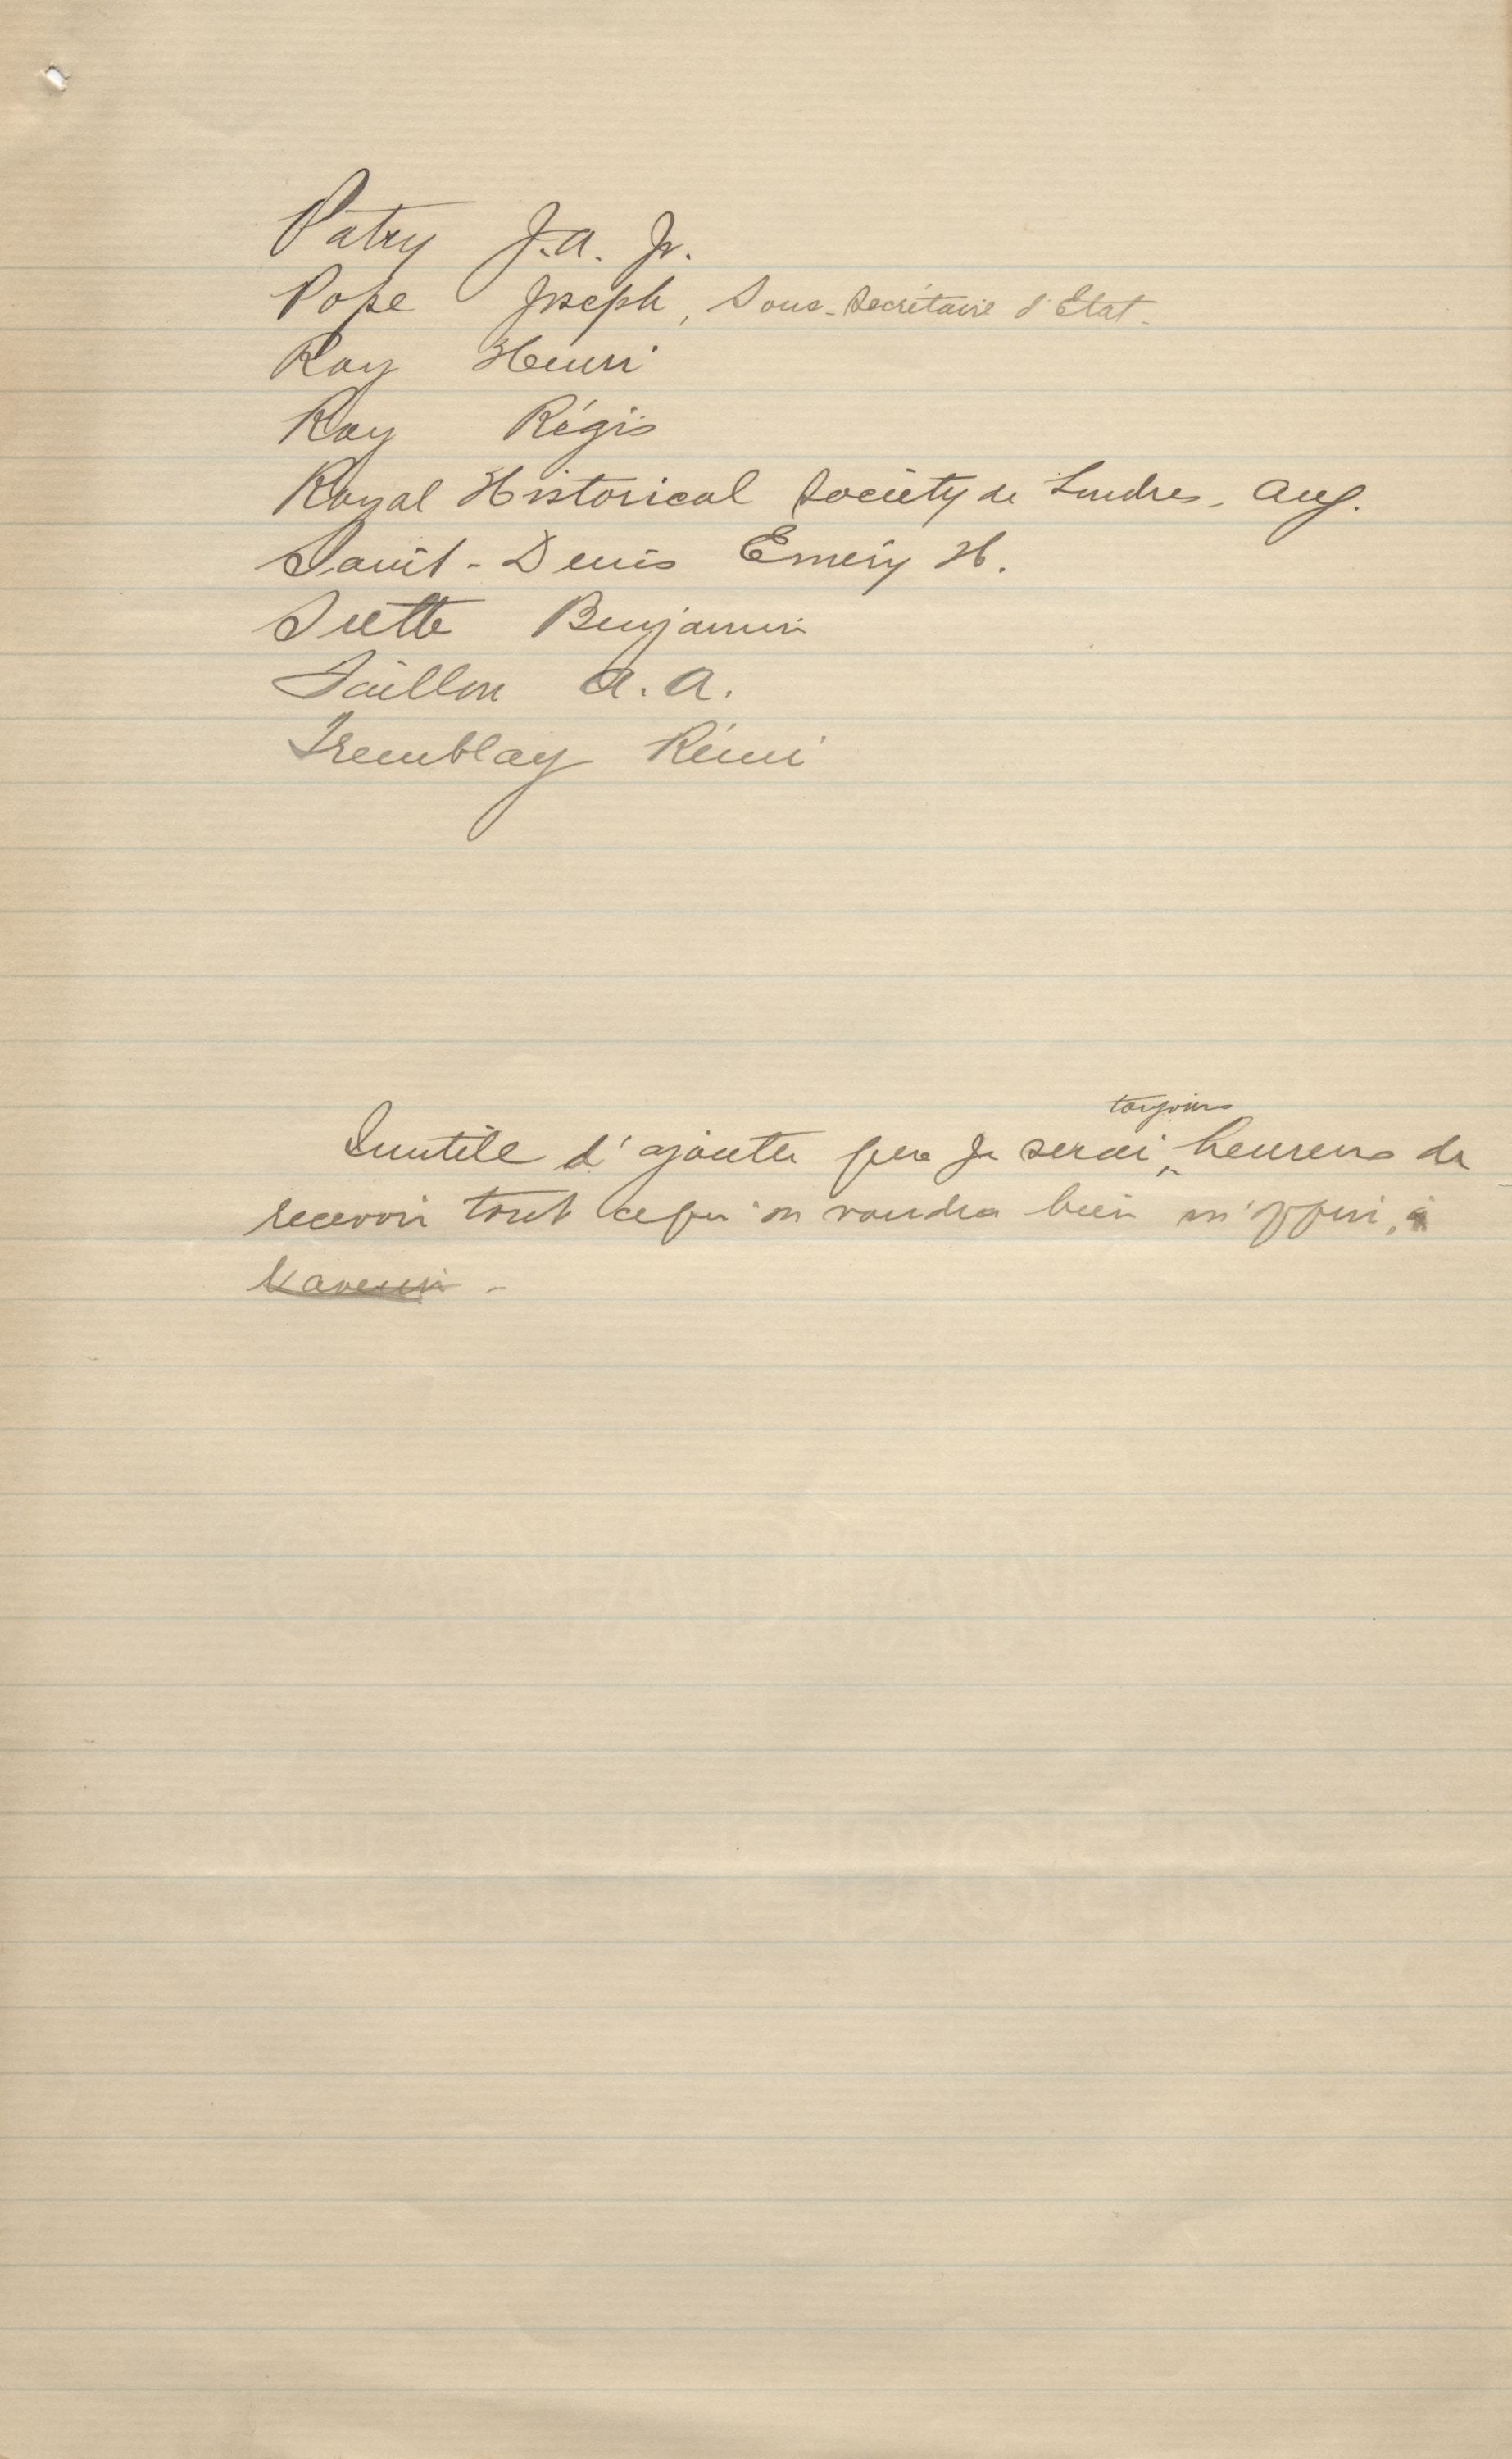 Patry J.A. Jr.
Pope Joseph, Sous-Secrétaire d'Etat.
Roy Henri
Roy Régis
Royal Historical Society de Londres, Ang.
Saint-Denis Emery H.
Sulte Benjamin
Taillon A.A.
Tremblay Rémi
toujours
Inutile d'ajouter que je serai heureux de
recevoir tout ce qu'on voudra bien m'offrir, à
l'avenir -